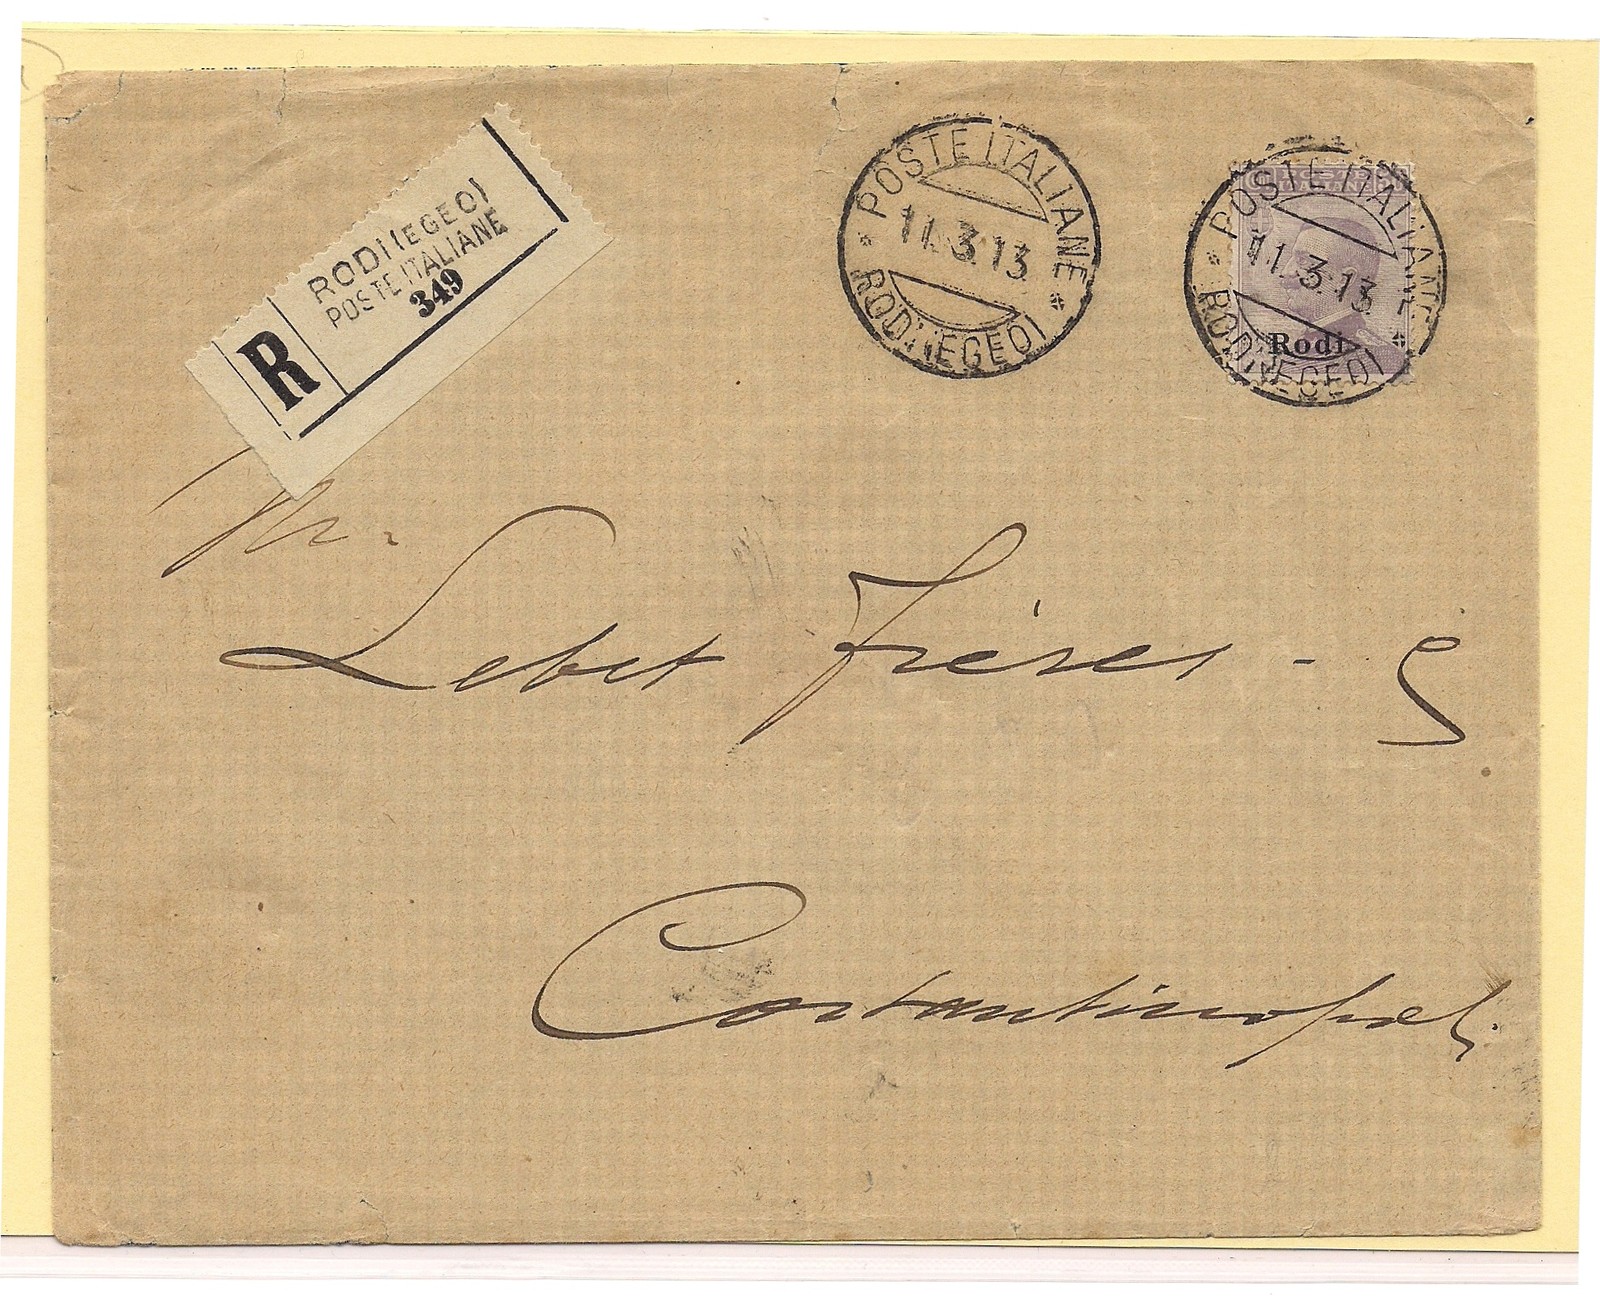 RODI (EGEO)
POSTE ITALIANE
349
R
POSTE ITALIANE
11.3.13
RODI (EGEO)
POSTE ITALIANE
11.3.13
RODI (EGEO)
POSTE
ITALIANE
Rodi
Lebet Frères
Constantinople